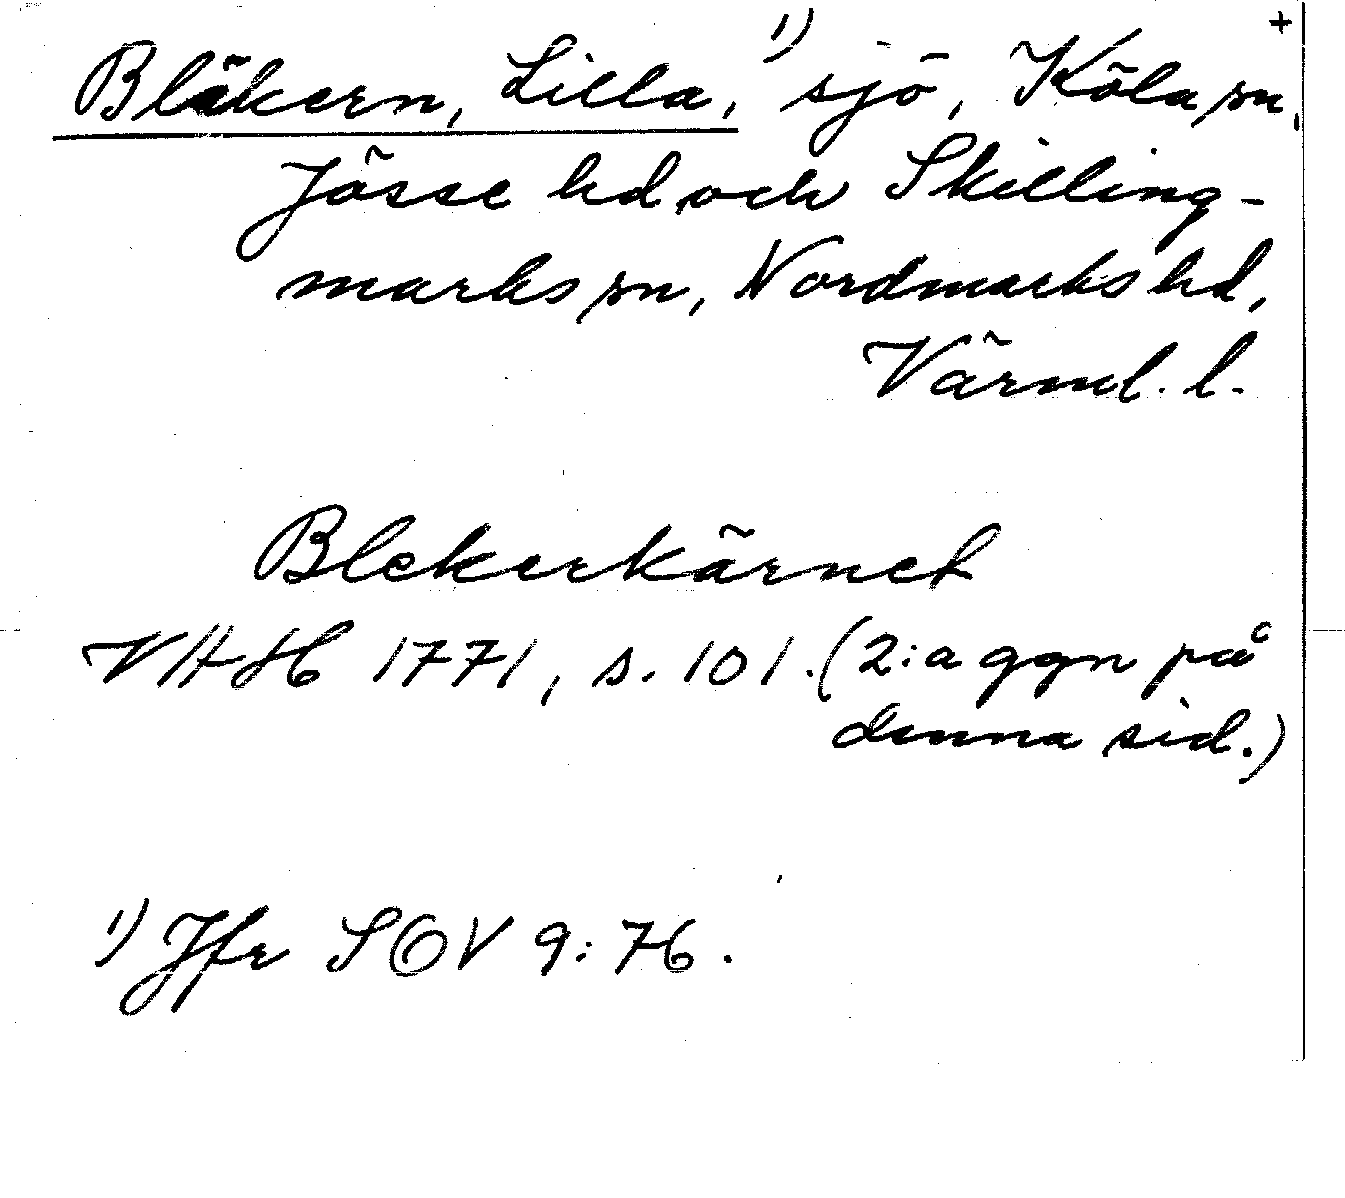 +
Bläkern, Lilla,¹⁾ sjö, Köla sn,
Jösse hd och Skilling-
marks sn, Nordmarks hd,
Värml. l.
Blekerkärnet
VHH 1771, s. 101. (2:a ggn på
denna sid.)
1) Jfr SOV 9:76.